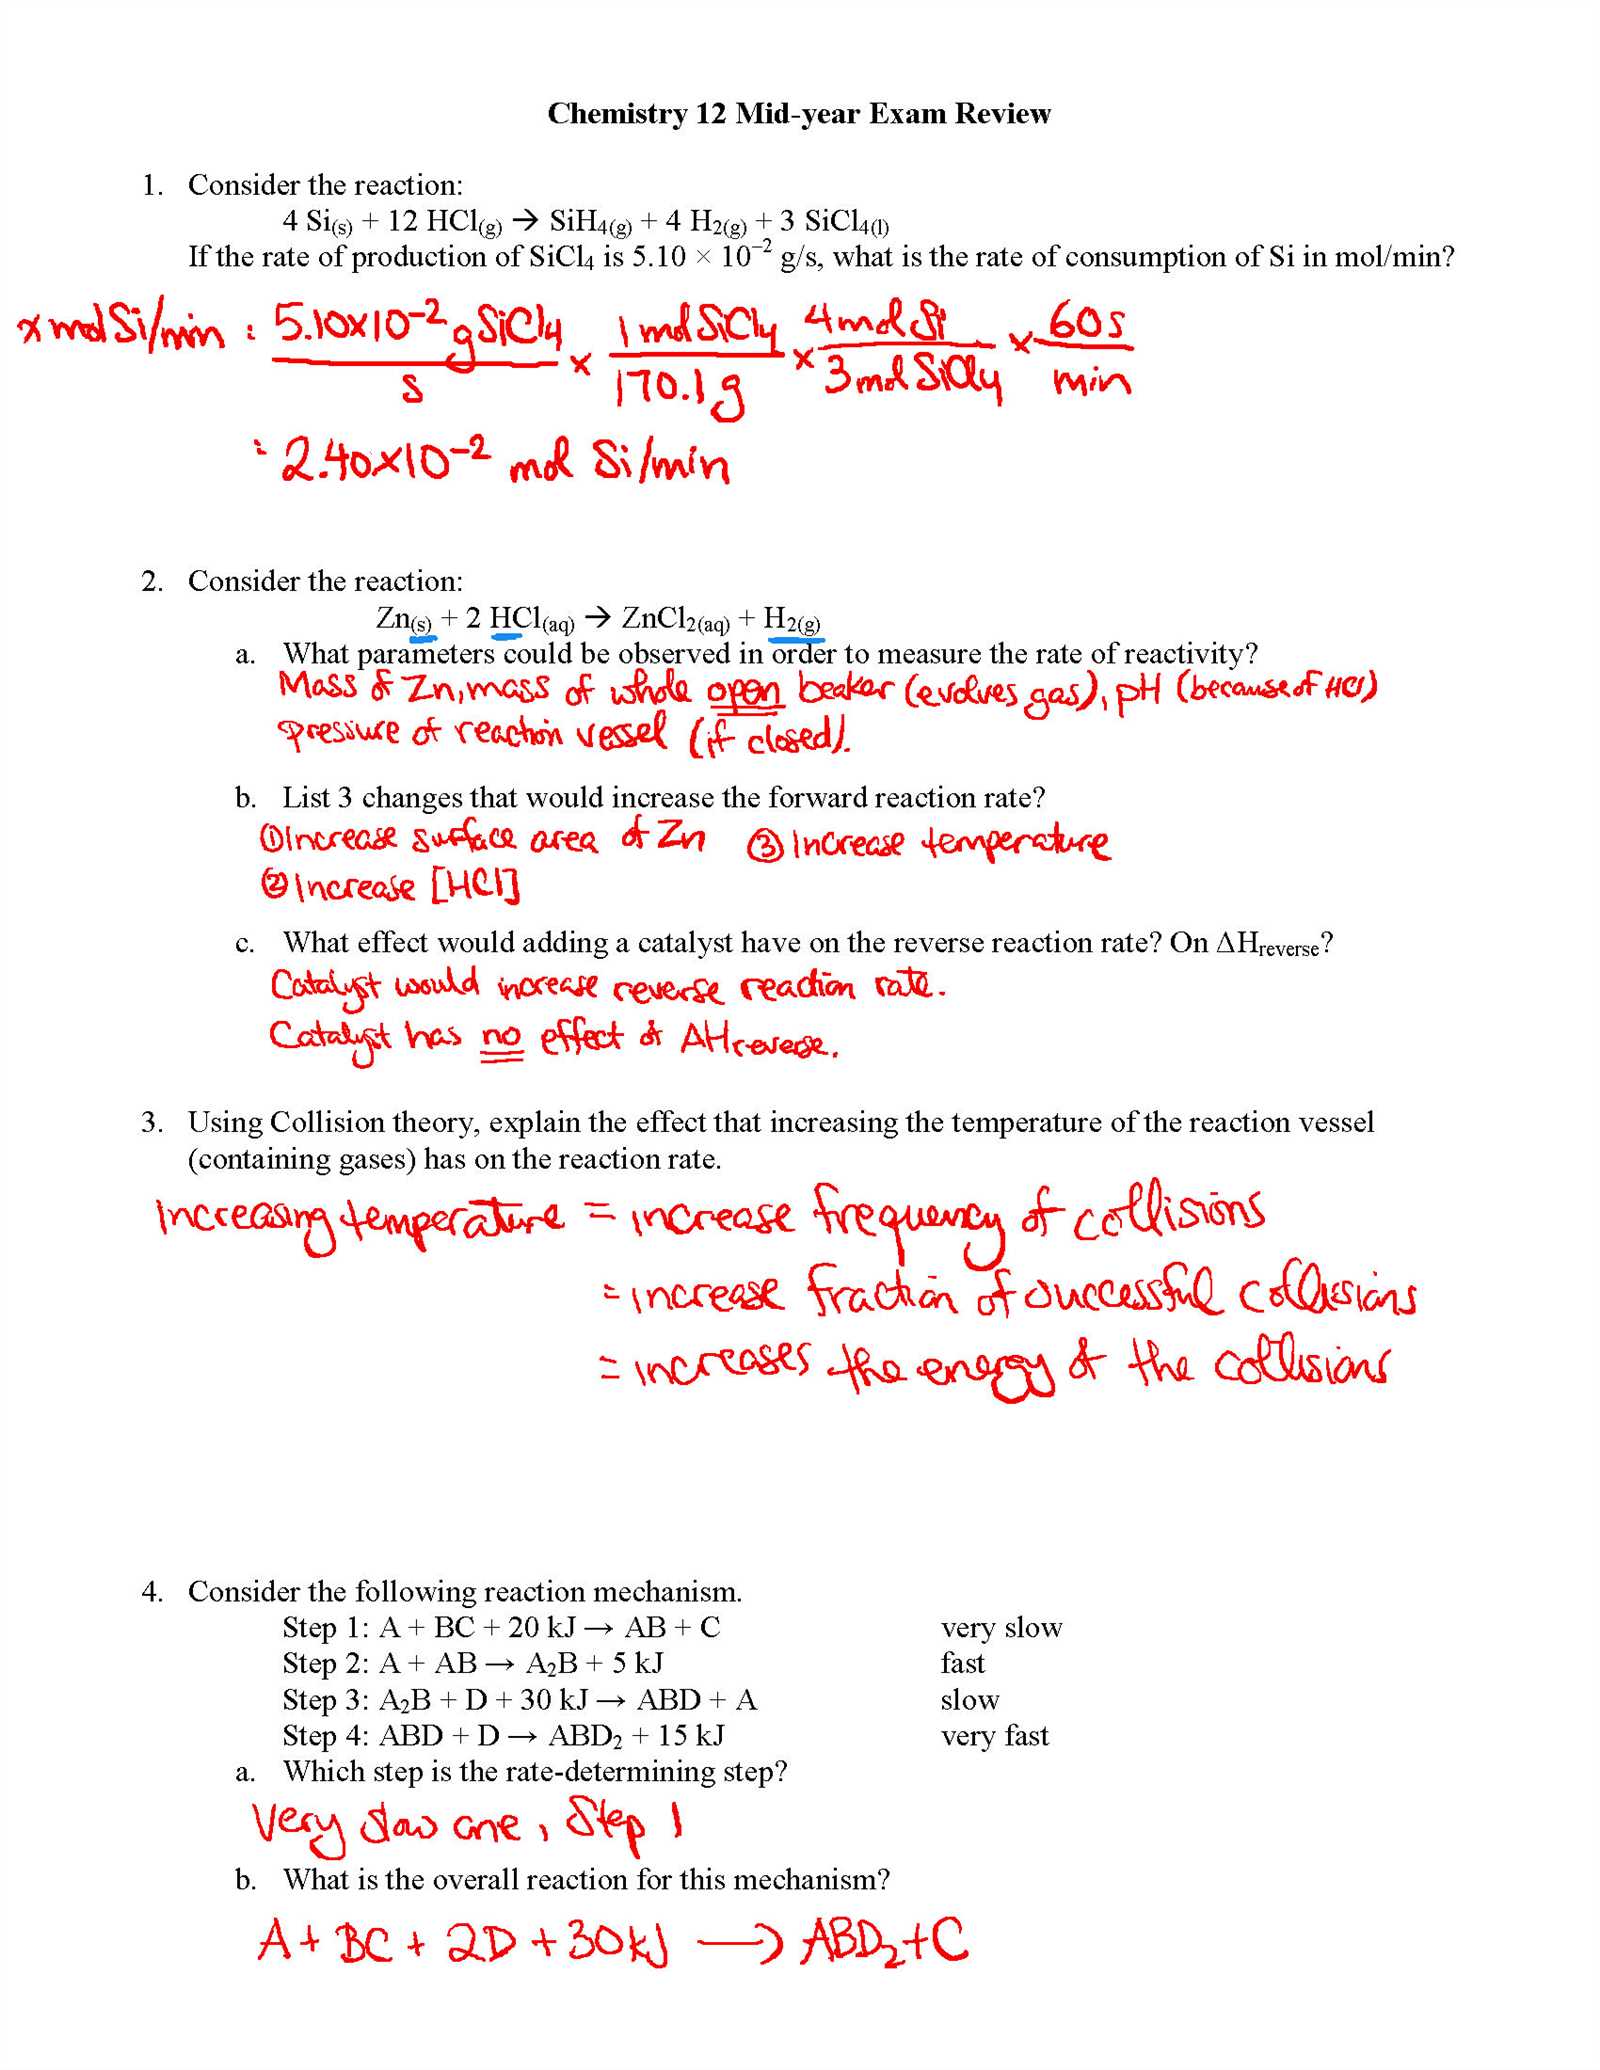 Chemistry 12 Mid-year Exam Review
1. Consider the reaction:
4 Si(s) + 12 HCl(g) → SiH4(g) + 4 H2(g) + 3 SiCl4(l)
If the rate of production of SiCl4 is 5.10 × 10⁻² g/s, what is the rate of consumption of Si in mol/min?
x mol Si/min = 5.10x10⁻² g SiCl4 / s × 1 mol SiCl4 / 170.1 g × 4 mol Si / 3 mol SiCl4 × 60 s / min
= 2.40x10⁻² mol Si/min
2. Consider the reaction:
Zn(s) + 2 HCl(aq) → ZnCl2(aq) + H2(g)
a. What parameters could be observed in order to measure the rate of reactivity?
Mass of Zn, mass of whole open beaker (evolves gas), pH (because of HCl)
pressure of reaction vessel (if closed).
b. List 3 changes that would increase the forward reaction rate?
① Increase surface area of Zn ③ Increase temperature
② Increase [HCl]
c. What effect would adding a catalyst have on the reverse reaction rate? On ΔHreverse?
Catalyst would increase reverse reaction rate.
Catalyst has no effect of ΔHreverse.
3. Using Collision theory, explain the effect that increasing the temperature of the reaction vessel
(containing gases) has on the reaction rate.
Increasing temperature = increase frequency of collisions
= increase fraction of successful collisions
= increases the energy of the collisions
4. Consider the following reaction mechanism.
Step 1: A + BC + 20 kJ → AB + C very slow
Step 2: A + AB → A2B + 5 kJ fast
Step 3: A2B + D + 30 kJ → ABD + A slow
Step 4: ABD + D → ABD2 + 15 kJ very fast
a. Which step is the rate-determining step?
Very slow one, Step 1
b. What is the overall reaction for this mechanism?
A + BC + 2D + 30kJ → ABD2 + C